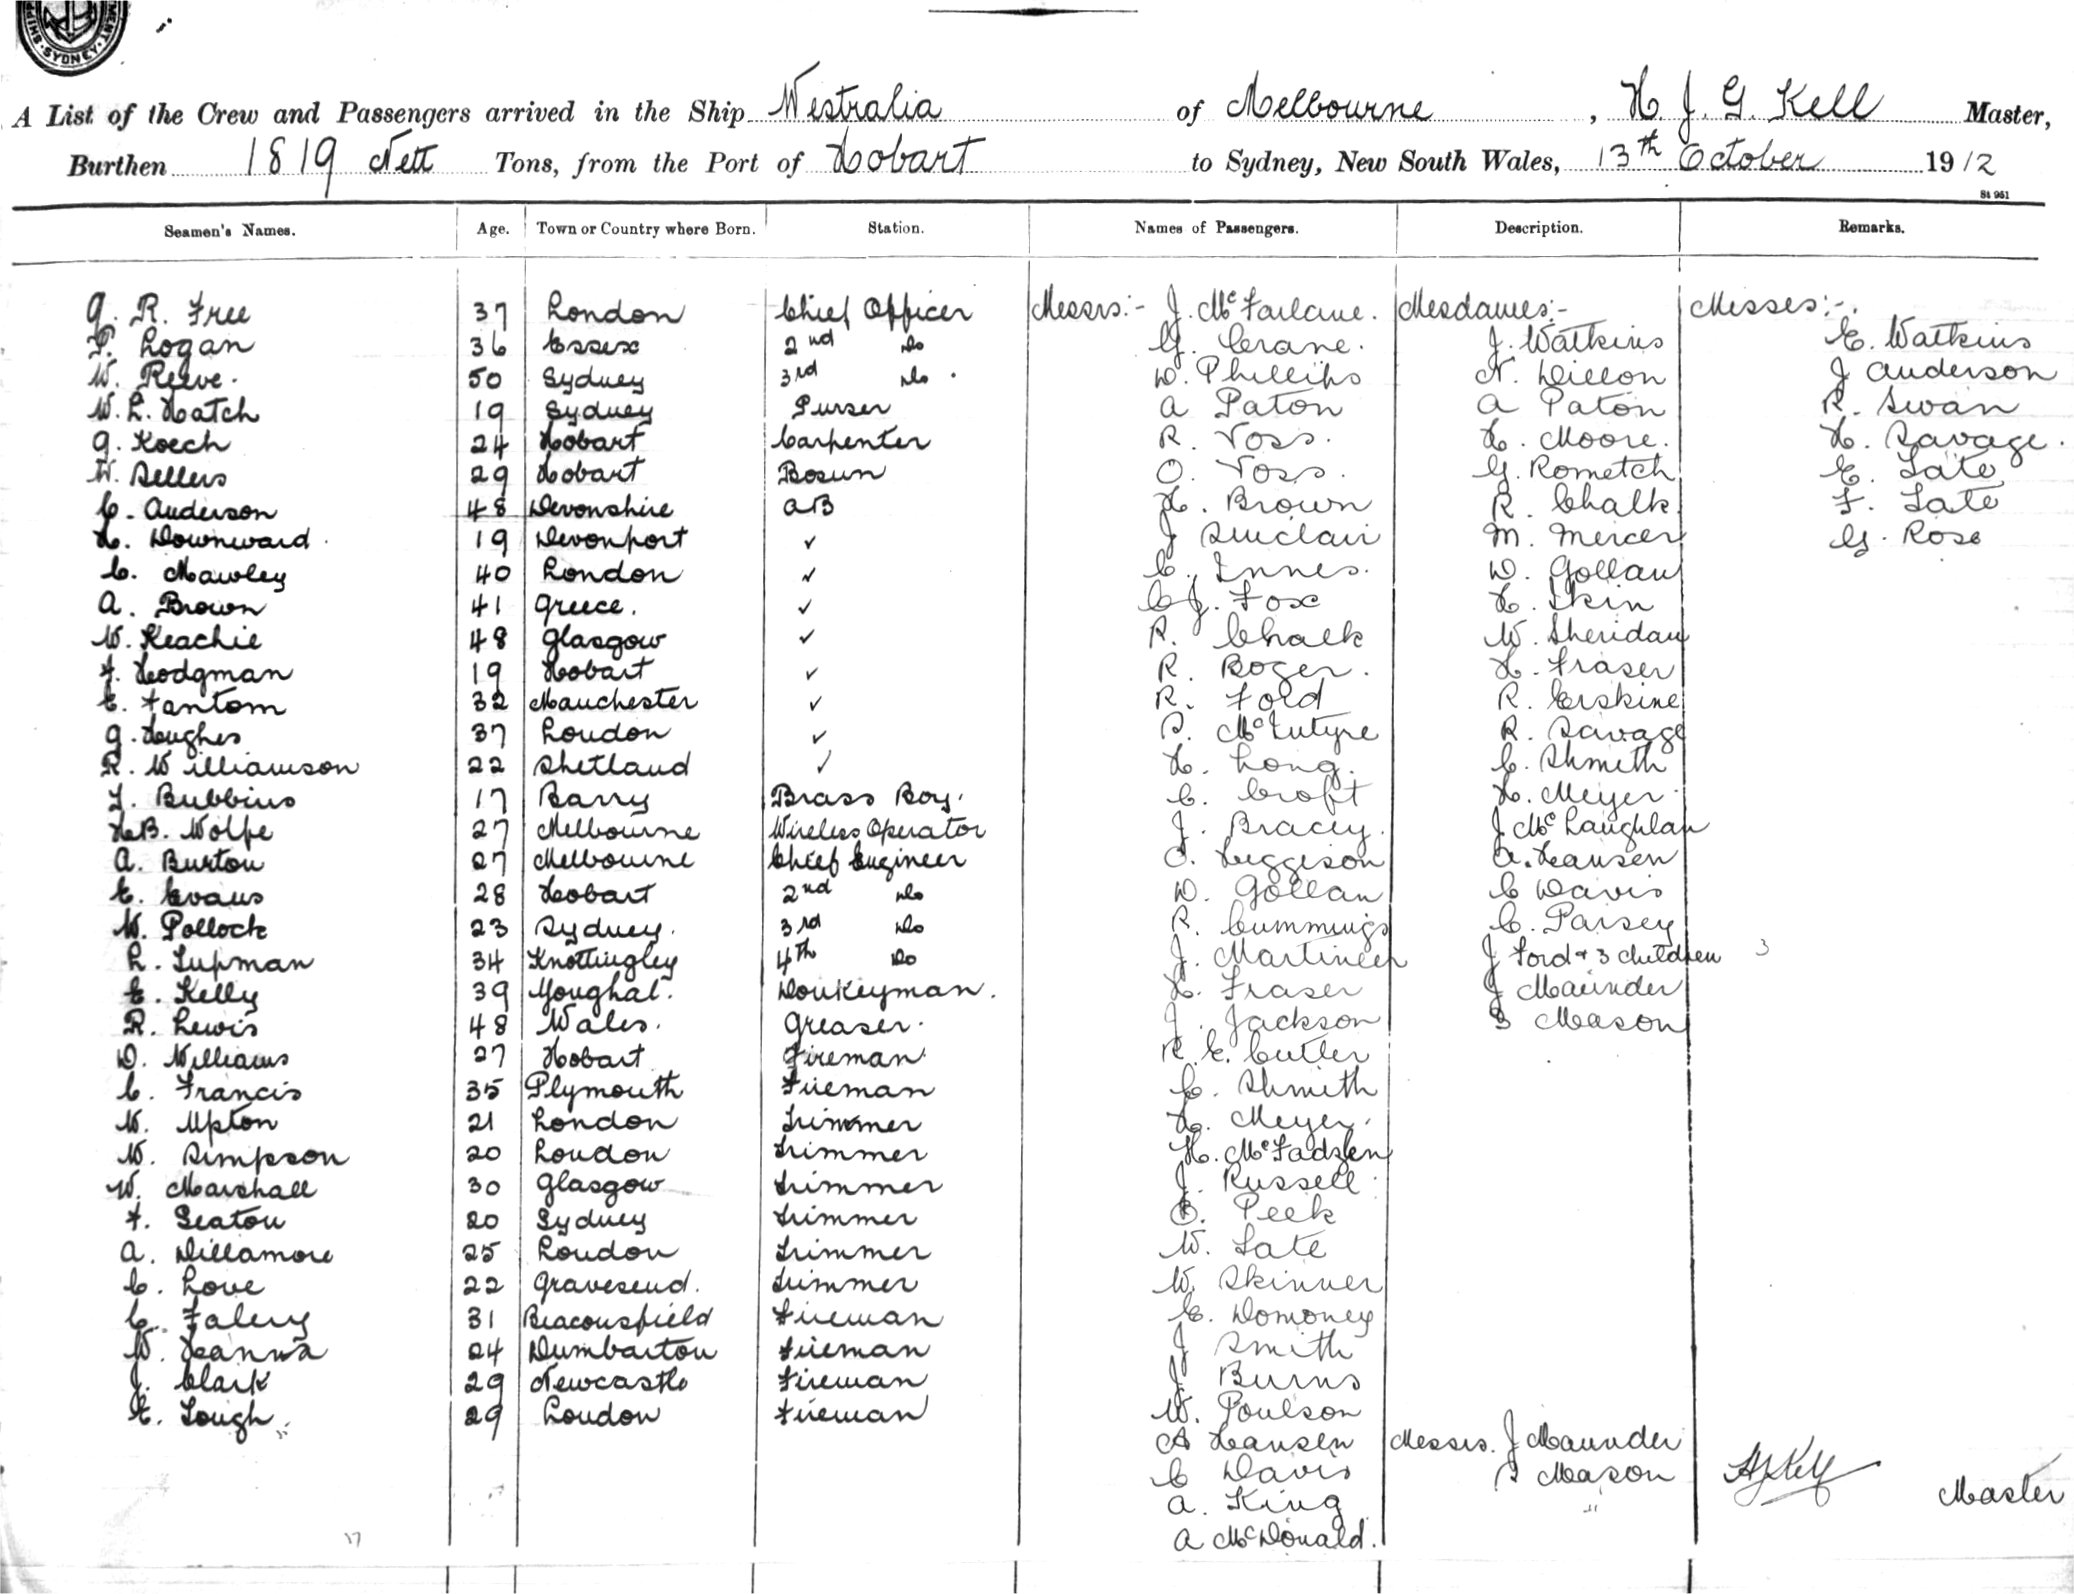 SYDNEY
A List of the Crew and Passengers arrived in the Ship Westralia of Melbourne, H. J. G. Kell Master,
Burthen 1819 Nett Tons, from the Port of Hobart to Sydney, New South Wales, 13th October 1912
St 951
Seamen's Names. Age. Town or Country where Born. Station. Names of Passengers. Description. Remarks.
G. R. Free 37 London Chief Officer Messrs:- J. McFarlane. Mesdames:- Misses:-
P. Logan 36 Essex 2nd Do G. Crane. J. Watkins E. Watkins
W. Reeve. 50 Sydney 3rd Do. W. Phillips N. Dillon J Anderson
W. L. Hatch 19 Sydney Purser A Paton A Paton R. Swan
G. Koech 24 Hobart Carpenter R. Voss. H. Moore. H. Savage.
W. Sellers 29 Hobart Bosun O. Voss. G. Rometch E. Tate
C. Anderson 48 Devonshire AB H. Brown R. Chalk F. Tate
H. Downward 19 Devonport ✓ J Sinclair M. Mercer G. Rose
C. Mawley 40 London ✓ C. Innes. D. Gollan
A. Brown 41 Greece. ✓ C J. Fox H. Skin
W. Keachie 48 Glasgow ✓ R. Chalk W. Sheridan
F. Hodgman 19 Hobart ✓ R. Boger. H. Fraser
E. Fantom 32 Manchester ✓ R. Ford R. Erskine
G. Hughes 37 London ✓ S. McIntyre R. Savage
R. Williamson 22 Shetland ✓ H. Long. C. Shmith
J. Bubbins 17 Barry Brass Boy. C. Croft H. Meyer.
H.B. Wolfe 27 Melbourne Wireless Operator J. Bracey. J McLaughlan
A. Burton 27 Melbourne Chief Engineer O. Huggison A. Hansen
E. Evans 28 Hobart 2nd Do D. Gollan C Davis
W. Pollock 23 Sydney. 3rd Do R. Cummings C. Parsey
L. Tupman 34 Knottingley 4th Do J. Martineer J Ford & 3 children 3
E. Kelly 39 Youghal. Donkeyman. H. Fraser J Maunder
R. Lewis 48 Wales. Greaser. J. Jackson S Mason
D. Williams 27 Hobart Fireman R. E. Cutler
C. Francis 35 Plymouth Fireman C. Shmith
W. Upton 21 London Trimmer H. Meyer.
W. Simpson 20 London Trimmer H. McFadzen
W. Marshall 30 Glasgow Trimmer J. Russell.
F. Seaton 20 Sydney Trimmer B. Peek
A. Dillamore 25 London Trimmer W. Tate
C. Love 22 Gravesend. Trimmer W. Skinner
C. Falery 31 Beaconsfield Fireman E. Domoney
W. Hanna 24 Dumbarton Fireman J Smith
J. Clark 29 Newcastle Fireman J Burns
E. Tough. 29 London Fireman W. Poulson
A Hansen Messrs. J Maunder
C Davis S Mason HJKell Master
A. King
A McDonald.
17